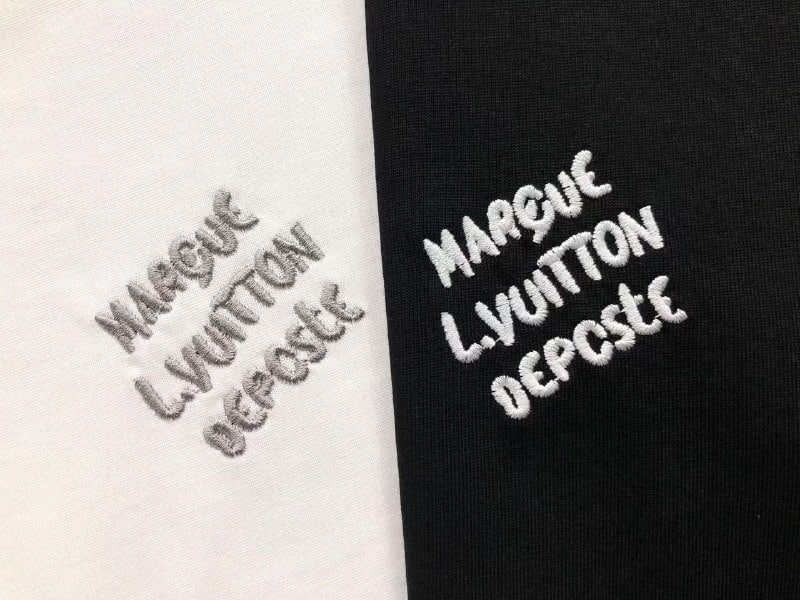 MARQUE
L.VUITTON
DEPOStE
MARQUE
L.VUITTON
DEPOStE